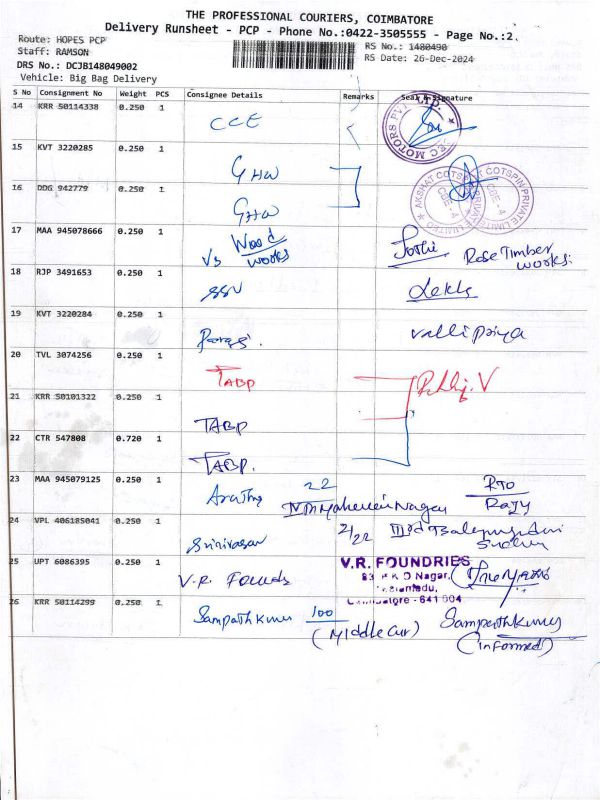 THE PROFESSIONAL COURIERS, COIMBATORE
Delivery Runsheet - PCP - Phone No.:0422-3505555 - Page No.:2
Route: HOPES PCP
RS No.: 1480490
Staff: RAMSON
RS Date: 26-Dec-2024
DRS No.: DCJB148049002
Vehicle: Big Bag Delivery
S No Consignment No Weight PCS Consignee Details Remarks Seal & Signature
14 KRR 50114338 0.250 1 CCE
15 KVT 3220285 0.250 1 GHW
16 DDG 942779 0.250 1 GHW
AKSHAT COTSPIN PRIVATE LIMITED CBE-4
17 MAA 945078666 0.250 1 Vs Wood works Rose Timber works:
18 RJP 3491653 0.250 1 SSV
19 KVT 3220284 0.250 1 Vallipriya
20 TVL 3074256 0.250 1 TABP
21 KRR 50101322 0.250 1 TABP
22 CTR 547808 0.720 1 TABP.
23 MAA 945079125 0.250 1 22 Nagar RTO
24 VPL 406185041 0.250 1 Srinivasan 2/22
25 UPT 6086395 0.250 1 V.R. Founds V.R. FOUNDRIES
Nagar,
Coimbatore - 641 004
26 KRR 50114299 0.250 1 Sampath Kumar 100 Sampath Kumar
(Middle Cur) (informed)